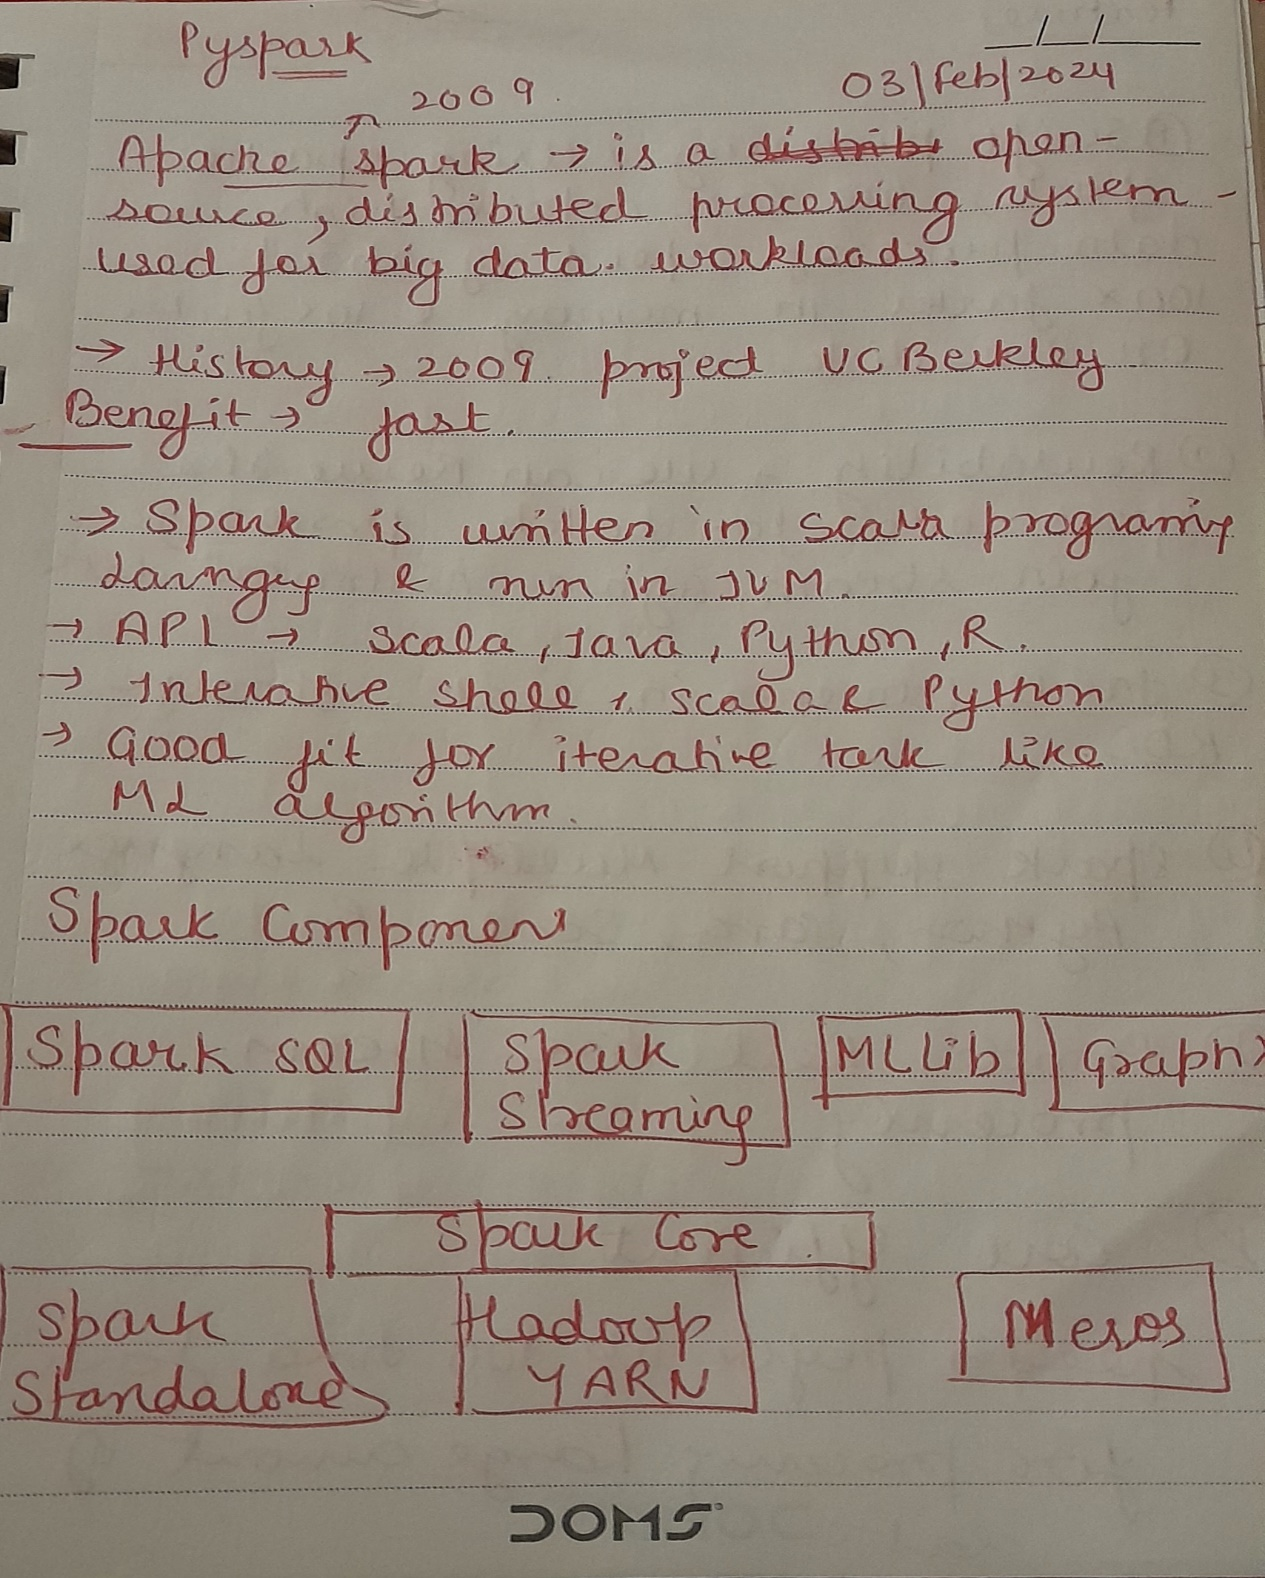 Pyspark
03/Feb/2024
2009.
Apache spark → is a distrib open-
source, distributed processing system -
used for big data. workloads.
→ History → 2009. project UC Berkley
Benefit → fast.
→ Spark is written in Scala programing
& run in JVM.
→ API → Scala, Java, Python, R.
→ Interative shell, scala & Python
→ Good fit for iterative task like
ML algorithm.
Spark Component
Spark SQL
Spark
Streaming
MLLib
GraphX
Spark Core.
Spark
Standalone
Hadoop
YARN
Mesos
DOMS